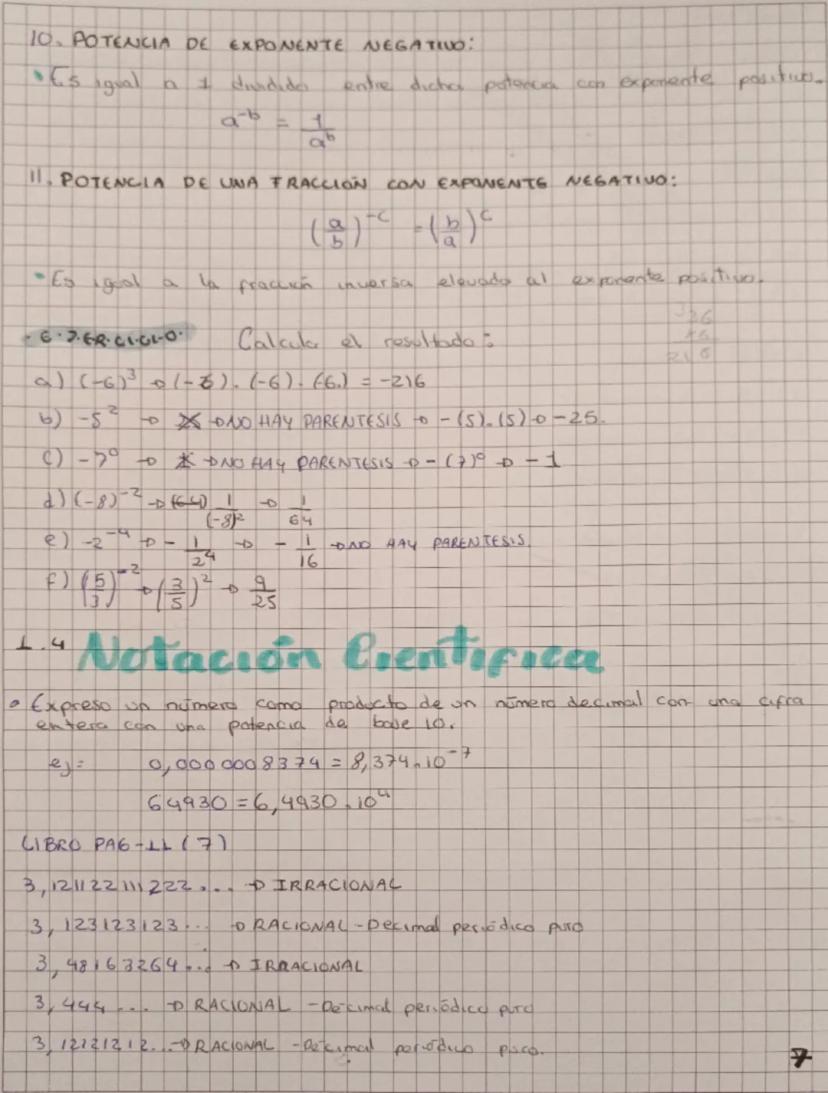 10. POTENCIA DE EXPONENTE NEGATIVO:
• Es igual a 1 dividido entre dicha potencia con exponente positivo.
a^-b = 1/a^b
11. POTENCIA DE UNA FRACCIÓN CON EXPONENTE NEGATIVO:
(a/b)^-c = (b/a)^c
• Es igual a la fracción inversa elevado al exponente positivo.
·E·J·ER·CI·CI·O· Calcula el resultado:
a) (-6)^3 → (-6).(-6).(-6.) = -216
b) -5^2 → NO HAY PARENTESIS → -(5).(5) → -25.
c) -7^0 → NO HAY PARENTESIS → -(7)^0 → -1
d) (-8)^-2 → 1/(-8)^2 → 1/64
e) -2^-4 → - 1/2^4 → - 1/16 → NO HAY PARENTESIS.
f) (5/3)^-2 → (3/5)^2 → 9/25
1.4 Notación Cientifica
• Expreso un número como producto de un número decimal con una cifra
entera con una potencia de base 10.
ej: 0,0000008374 = 8,374.10^-7
64930 = 6,4930.10^4
LIBRO PAG-11 (7)
3,121122111222... → IRRACIONAL
3,123123123... → RACIONAL - Decimal periódico puro
3,48163264... → IRRACIONAL
3,444... → RACIONAL - Decimal periódico puro
3,12121212... → RACIONAL - Decimal periódico puro.
7